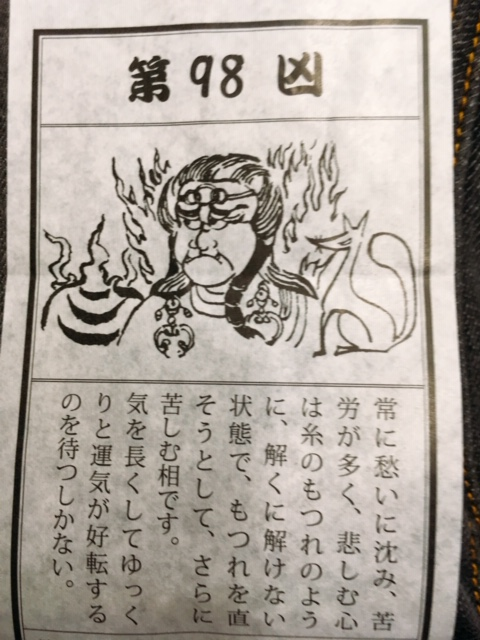 第98 凶
常に愁いに沈み、苦
労が多く、悲しむ心
は糸のもつれのよう
に、解くに解けない
状態で、もつれを直
そうとして、さらに
苦しむ相です。
気を長くしてゆっく
りと運気が好転する
のを待つしかない。